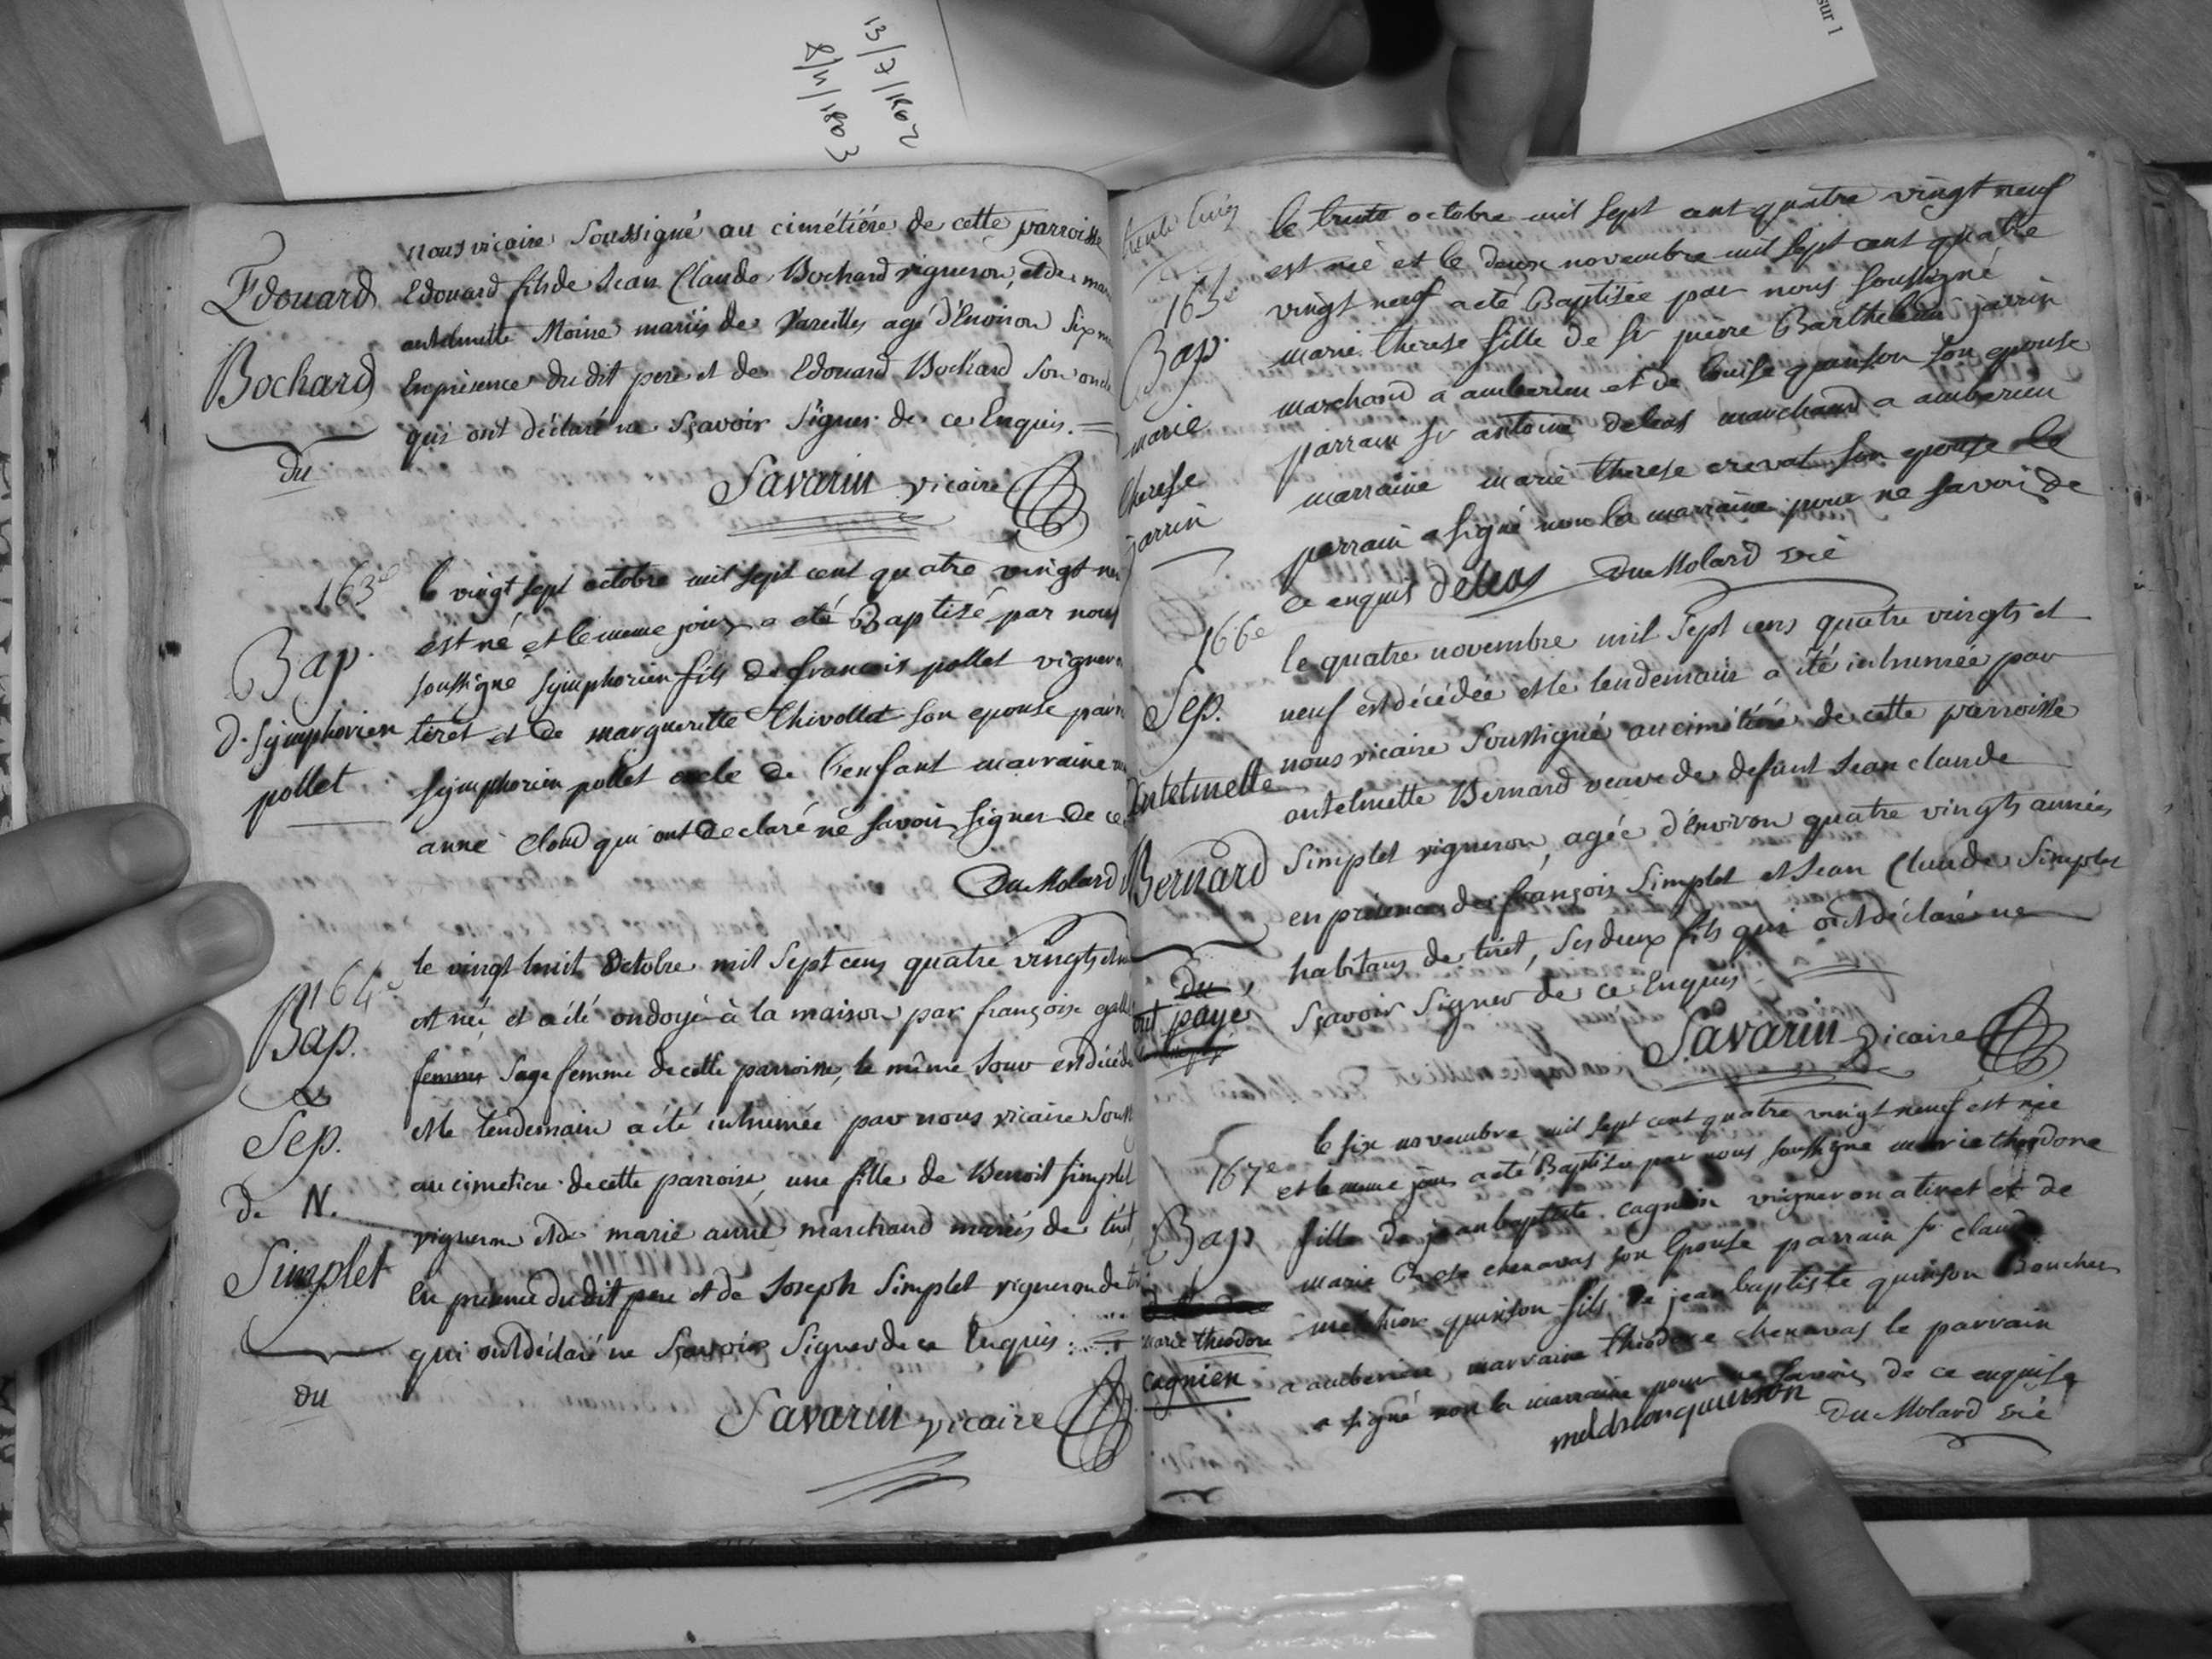 13/7/1802
8/11/1803
sur 1
nous vicaire soussigné au cimétiére de cette parroisse
Edouard
Bochard
du
Edouard fils de Jean Claude Bochard vigneron, et de
antelmette Moine mariés de Vareilles agé d'Environ six
En présence du dit pere et de Edouard Bochard son oncle
qui ont déclaré ne sçavoir signer de ce Enquis.
Savarin vicaire
163e
Bap.
d. symphorien
pollet
le vingt sept octobre mil sept cent quatre vingt
est né et le meme jour a eté Baptisé par nous
soussigne symphorien fils de francois pollet vigneron
tiret et de margueritte thivollet son epouse
symphorien pollet oncle de l'enfant marraine
anne Cloud qui ont declaré ne savoir signer de ce
DuMolard
164e
Bap.
&
Sep.
de N.
Simplet
du
le vingt huit Octobre mil Sept cens quatre vingts et
est née et a été ondoyé à la maison par françoise
femme sage femme de cette parroisse, le même jour est décédé
et le lendemain a été inhumée par nous vicaire
au cimetiere de cette parroisse, une fille de Benoit simplet
vigneron et de marie anne marchand mariés de tiret,
En présence du dit pere et de Joseph Simplet vigneron de
qui ont déclaré ne sçavoir signer de ce Enquis
Savarin vicaire
165e
Bap.
marie
therese
jarrin
le trente octobre mil sept cent quatre vingt neuf
est née et le deux novembre mil sept cent quatre
vingt neuf a eté Baptisée par nous soussigné
marie therese fille de sr pierre Barthelemi jarrin
marchand a amberieu et de louise quinson son epouse
parrain sr antoine deleas marchand a amberieu
marraine marie therese crevat son epouse le
parrain a signé non la marraine pour ne savoir de
ce enquis Deleas DuMolard vic
166e
Sep.
Antelmette
Bernard
du
paye
le quatre novembre mil Sept cens quatre vingts et
neuf est décédée et le lendemain a été inhumée par
nous vicaire soussigné au cimétiére de cette parroisse
antelmette Bernard veuve de defunt Jean claude
Simplet vigneron, agée d'Environ quatre vingts années
en présence de françois Simplet et Jean Claude Simplet
habitans de tiret, ses deux fils qui ont déclaré ne
sçavoir signer de ce Enquis
Savarin vicaire
167e
Bap
marie théodore
cagnien
le six novembre mil sept cent quatre vingt neuf est née
et le meme jour a eté Baptisée par nous soussigne marie theodore
fille de jean baptiste cagnien vigneron a tiret et de
marie chenavas son Epouse parrain sr claude
melchior quinson fils de jean baptiste quinson Boucher
a amberieu marraine théodore chenavas le parrain
a signé non la marraine pour ne savoir de ce enquise
melchior quinson DuMolard vic